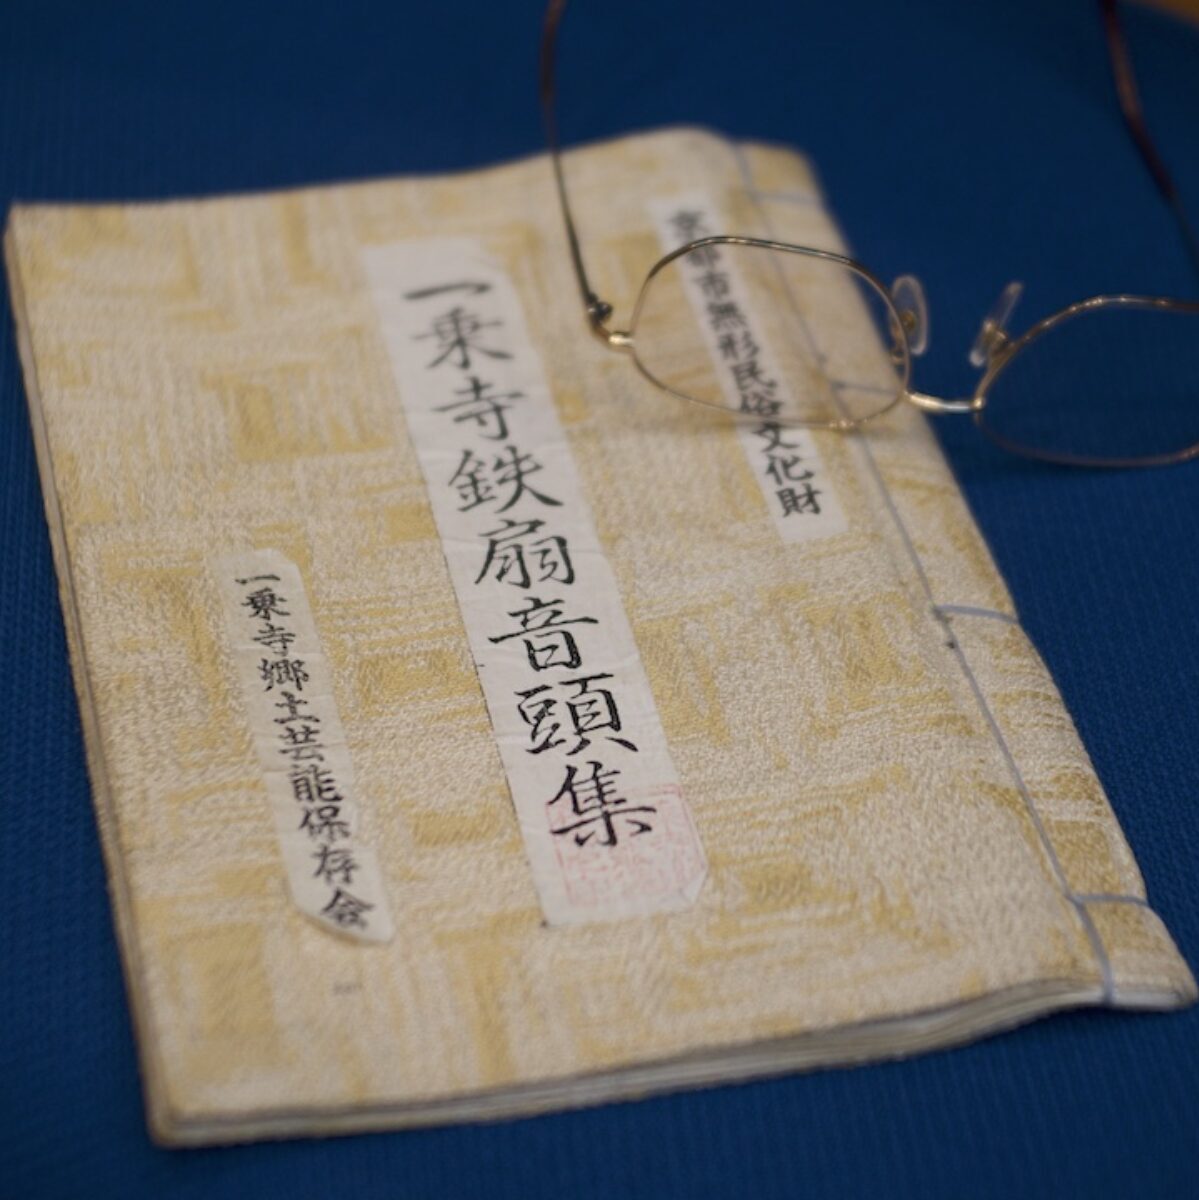 京都市無形民俗文化財
一乗寺鉄扇音頭集
一乗寺郷土芸能保存会